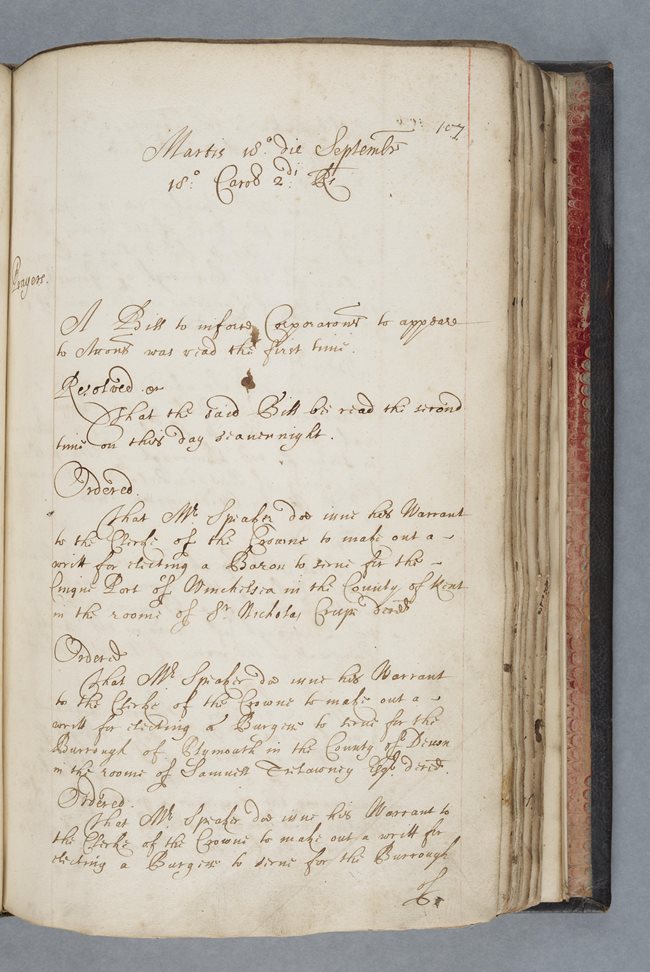 107
Martis 18° die Septembrs
18°: Carol 2di: Rs
Prayers.
A Bill to inforce Corporations to appeare
to Accons was read the first time.
Resolved &
That the said Bill be read the second
time on this day seavennight.
Ordered.
That Mr Speaker doe issue his Warrant
to the Clerke of the Crowne to make out a
writt for electing a Baron to serve for the
Cinque Port of Winchelsea in the County of Kent
in the roome of Sr Nicholas Crispe
Ordered
That Mr Speaker doe issue his Warrant
to the Clerke of the Crowne to make out a
writt for electing a Burgess to serve for the
Burrough of Plymouth in the County of Devon
in the roome of Samuell Trelawney Esqr
Ordered.
That Mr Speaker doe issue his Warrant to
the Clerke of the Crowne to make out a writt for
electing a Burgess to serve for the Burrough
of